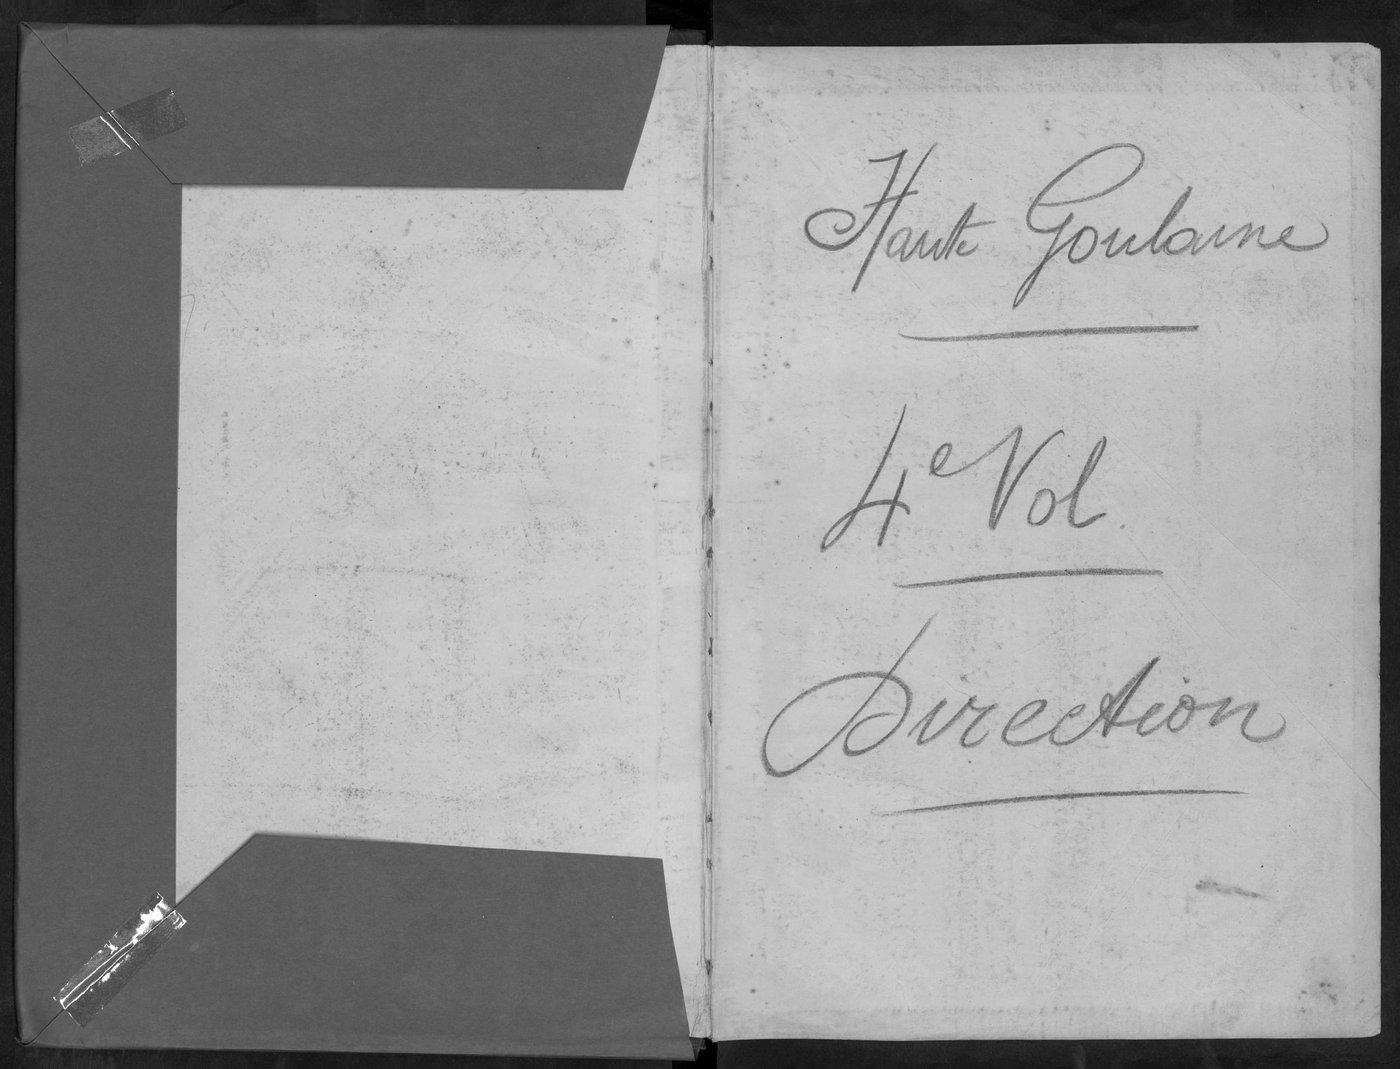 Haute Goulaine
4e Vol
Direction